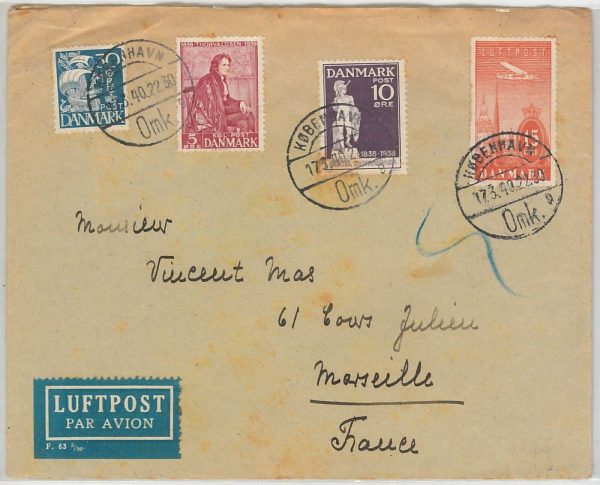 30
ØRE
POST
DANMARK
1838 - THORVALDSEN - 1938
5
KGL. POST
DANMARK
DANMARK
POST
10
ØRE
1838-1938
LUFTPOST
15
DANMARK
HAVN
3.40.22.30
Omk.
KØBENHAVN
17.3.
Omk.
KØBENHAVN
17.3.40.22.30
Omk. 9
Monsieur
Vincent Mas
61 Cours Julien
Marseille
France
LUFTPOST
PAR AVION
F. 63